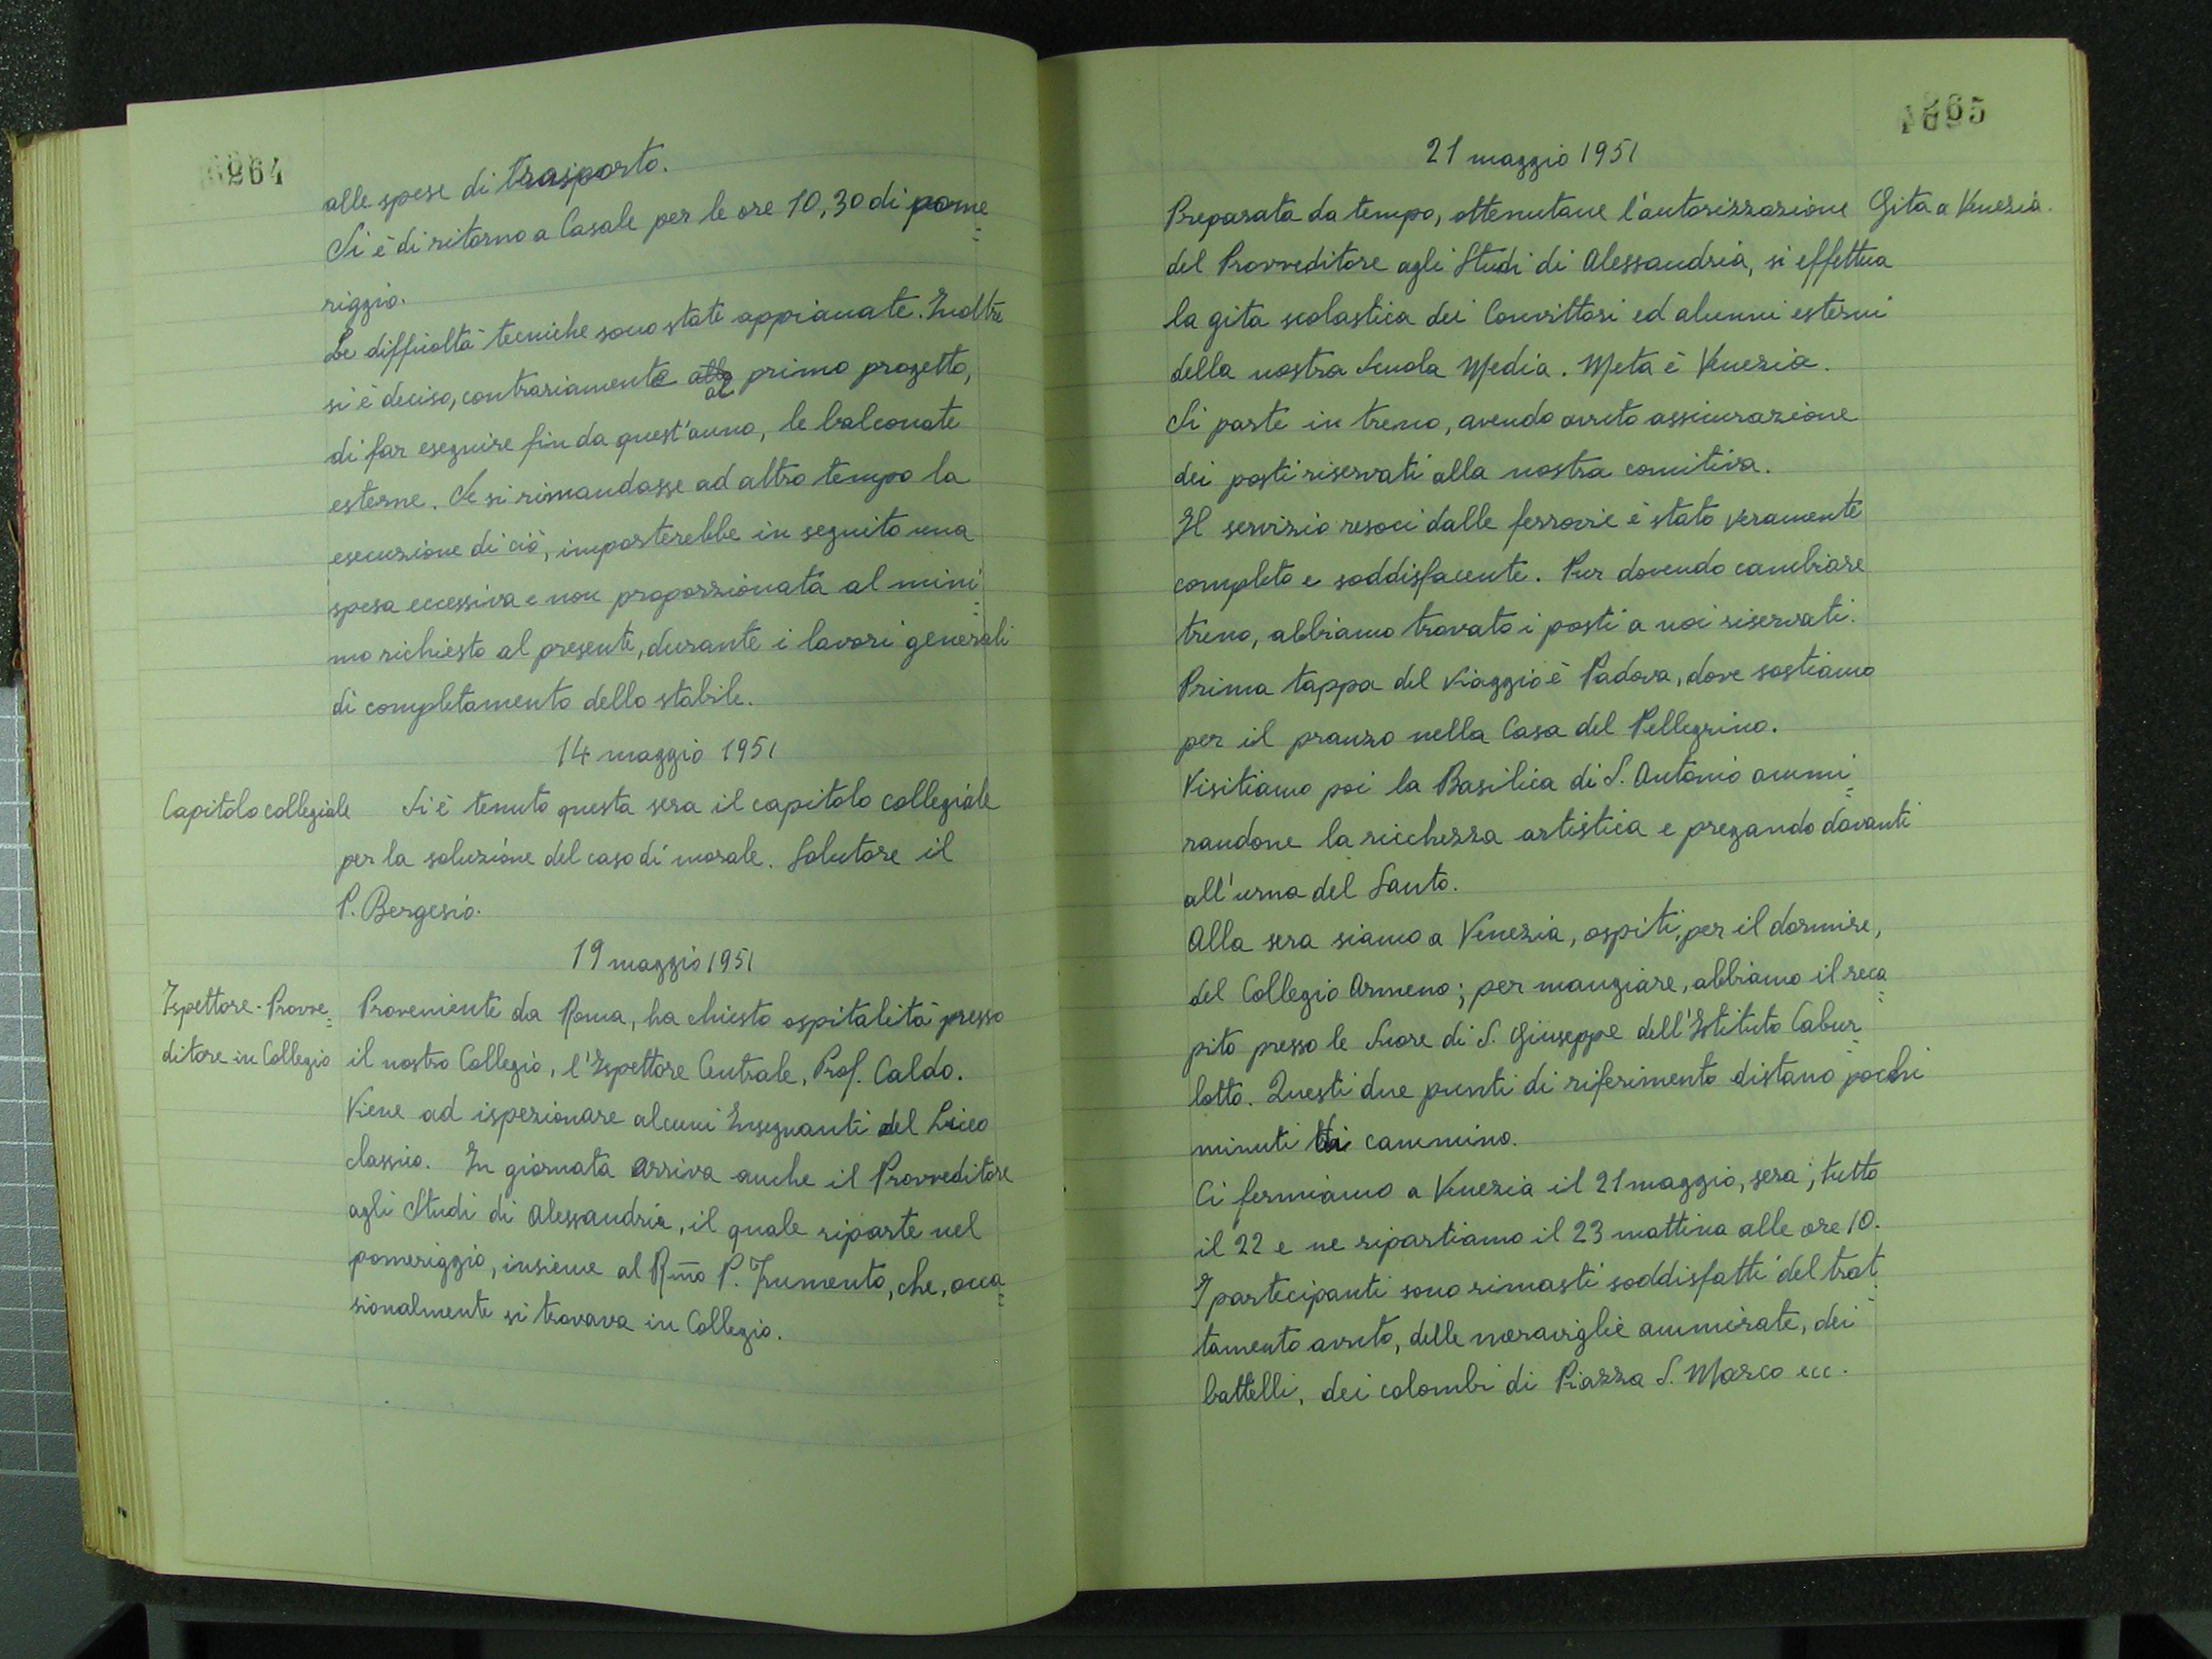 264
alle spese di trasporto.
Si è di ritorno a Casale per le ore 10,30 di pome=
riggio.
Le difficoltà tecniche sono state appianate. Inoltre
si è deciso, contrariamente al primo progetto,
di far eseguire fin da quest'anno, le balconate
esterne. Se si rimandasse ad altro tempo la
esecuzione di ciò, importerebbe in seguito una
spesa eccessiva e non proporzionata al mini=
mo richiesto al presente, durante i lavori generali
di completamento dello stabile.
14 maggio 1951
Capitolo collegiale
Si è tenuto questa sera il capitolo collegiale
per la soluzione del caso di morale. Solutore il
P. Bergesio.
19 maggio 1951
Ispettore - Provve=
ditore in Collegio
Proveniente da Roma, ha chiesto ospitalità presso
il nostro Collegio, l'Ispettore Centrale, Prof. Caldo.
Viene ad ispezionare alcuni Insegnanti del Liceo
classico. In giornata arriva anche il Provveditore
agli Studi di Alessandria, il quale riparte nel
pomeriggio, insieme al Rmo P. Frumento, che, occa=
sionalmente si trovava in Collegio.
265
21 maggio 1951
Gita a Venezia.
Preparata da tempo, ottenutane l'autorizzazione
del Provveditore agli Studi di Alessandria, si effettua
la gita scolastica dei Convittori ed alunni esterni
della nostra Scuola Media. Meta è Venezia.
Si parte in treno, avendo avuto assicurazione
dei posti riservati alla nostra comitiva.
Il servizio resoci dalle ferrovie è stato veramente
completo e soddisfacente. Pur dovendo cambiare
treno, abbiamo trovato i posti a noi riservati.
Prima tappa del viaggio è Padova, dove sostiamo
per il pranzo nella Casa del Pellegrino.
Visitiamo poi la Basilica di S. Antonio ammi=
randone la ricchezza artistica e pregando davanti
all'urna del Santo.
Alla sera siamo a Venezia, ospiti, per il dormire,
del Collegio Armeno; per mangiare, abbiamo il reca=
pito presso le Suore di S. Giuseppe dell'Istituto Cabur=
lotto. Questi due punti di riferimento distano pochi
minuti di cammino.
Ci fermiamo a Venezia il 21 maggio, sera; tutto
il 22 e ne ripartiamo il 23 mattina alle ore 10.
I partecipanti sono rimasti soddisfatti del trat=
tamento avuto, delle meraviglie ammirate, dei
battelli, dei colombi di Piazza S. Marco ecc.